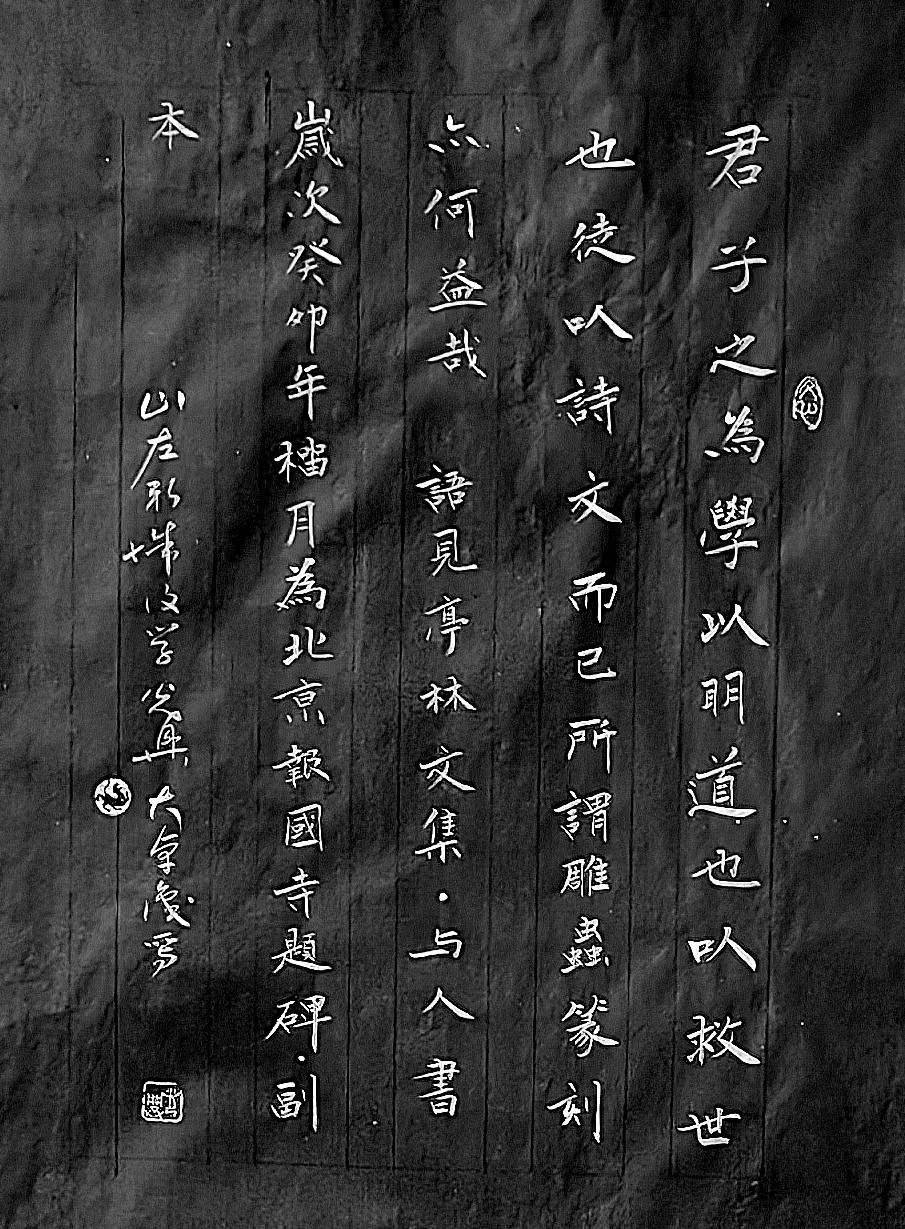 君子之為學以明道也㕥救世
也徒㕥詩文而已所謂雕蟲篆刻
亦何益哉 語見亭林文集·与人書
歲次癸卯年榴月為北京報國寺題碑·副
本
山左 学 大 寫